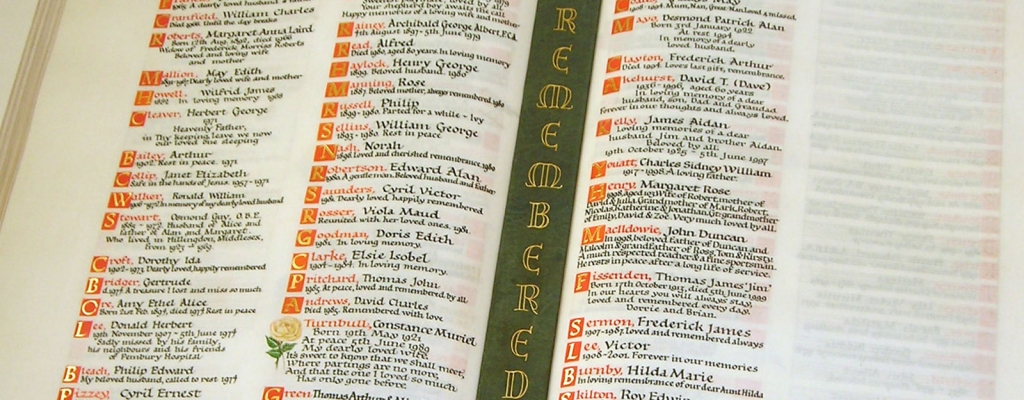 Cranfield, William Charles
Died 1966. Until the day breaks
Roberts, Margaret Anna Laird
Born 17th Aug. 1892, died 1966
Widow of Frederick Morriss Roberts
Beloved and loving wife
and mother
Mallion, May Edith
Dearly loved wife and mother
Howell, Wilfrid James
In loving memory 1968
Cleaver, Herbert George
1971
Heavenly Father,
in Thy keeping leave we now
our loved one sleeping
Bailey, Arthur
1902. Rest in peace. 1971
Collip, Janet Elizabeth
Safe in the hands of Jesus. 1957-1971
Walker, Ronald William
In memory of my dearly loved husband
Stewart, Osmond Guy, O.B.E.
Husband of Alice and
father of Alan and Margaret.
Who lived in Hillingdon, Middlesex,
from 1927-1967.
Croft, Dorothy Ida
1902-1973 Dearly loved, happily remembered
Bridger, Gertrude
d. 1974 A treasure I lost and miss so much
Cre, Amy Ethel Alice
Born 21st Feb. 1891, died 1974 Rest in peace
Lee, Donald Herbert
19th November 1907 - 5th June 1974
Sadly missed by his family,
his neighbours and his friends
of Pembury Hospital
Bleach, Philip Edward
My beloved husband, called to rest 1974
Pizzey, Cyril Ernest
Happy memories of a loving wife and mother
Rainey, Archibald George Albert, F.C.A.
4th August 1897-5th June 1979
Read, Alfred
Died 1980, aged 80 years. In loving memory
Haylock, Henry George
1899. Beloved husband. 1980
Manning, Rose
1887. Beloved mother, always remembered. 1980
Russell, Philip
1899-1980 Parted for a while - Ivy
Sellins, William George
1893-1980 Rest in peace
Nash, Norah
Loved and cherished remembrance.
Robertson, Edward Alan
A gentle man. Beloved husband and father
Saunders, Cyril Victor
1981. Dearly loved, happily remembered
Rosser, Viola Maud
Reunited with her loved ones. 1981.
Goodman, Doris Edith
1981. In loving memory.
Clarke, Elsie Isobel
In loving memory.
Pritchard, Thomas John
At peace, loved and remembered by all
Andrews, David Charles
Died 1985. Remembered with love
Turnbull, Constance Muriel
Born 19th May 1921
At peace 5th June 1989
My dearly loved wife.
It's sweet to know that we shall meet
Where partings are no more,
And that the one I loved so much
Has only gone before.
Green Thomas Arthur &
REMEMBERED
Mayo, Desmond Patrick Alan
Born 3rd January 1922
At rest 1994
In memory of a dearly
loved husband.
Clayton, Frederick Arthur
Died 1994. Love's last gift, remembrance.
Akehurst, David T. (Dave)
1936-1996, aged 60 years
In loving memory of a dear
husband, son, Dad and Grandad
Forever in our thoughts and always loved.
Kelly, James Aidan
Loving memories of a dear
husband Jim and brother Aidan.
Beloved by all.
19th October 1926 - 5th June 1997
Youatt, Charles Sidney William
1917-1998. A loving father.
Henry, Margaret Rose
1998, aged wife of Robert, mother of
David & Julia. Grandmother of Mark, Robert,
Nicolas, Katherine & Jonathan. Gt. grandmother
of Emily, David & Zoë. Very much loved by all.
Macildowie, John Duncan
In 1998, beloved father of Duncan and
Malcolm & grandfather of Ross, Tom & Kirsty.
A much respected teacher & a fine sportsman.
He rests in peace after a long life of service.
Fissenden, Thomas James 'Jim'
Born 17th October 1917, died 5th June 1999
In our hearts you will always stay,
loved and remembered every day.
Dorrie and Brian.
Sermon, Frederick James
1907-1985. Loved and remembered always
Lee, Victor
1908-2001. Forever in our memories
Burnby, Hilda Marie
In loving remembrance of our dear Aunt Hilda
Skilton, Roy Edwin